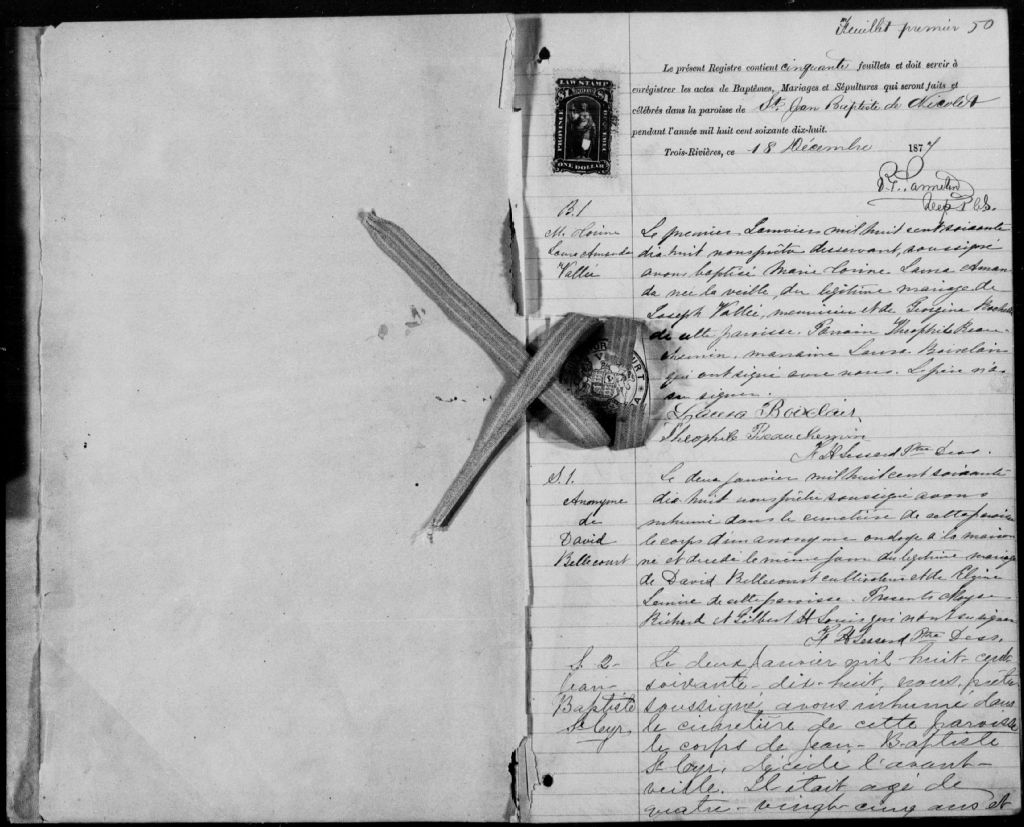 Feuillet premier 50
Le présent Registre contient cinquante feuillets et doit servir à
enrégistrer les actes de Baptêmes, Mariages et Sépultures qui seront faits et
célébrés dans la paroisse de St. Jean Baptiste de Nicolet
pendant l'année mil huit cent soixante dix-huit.
Trois-Rivières, ce 18 Décembre 1877
LAW STAMP
PROVINCE
ONE DOLLAR
B. 1
M. Corine
Laura Amanda
Vallée
Le premier Janvier mil huit cent soixante
dix huit nous prêtre desservant, soussigné
avons baptisé Marie Corine Laura Aman
da née la veille, du légitime mariage de
Joseph Vallée, menuisier et de Georgine
de cette paroisse. Parrain Théophile Beau
chemin, marraine Laura Boisclair
qui ont signé avec nous. Le père n'a
su signer.
Laura Boisclair
Théophile Beauchemin
F. H. Lessard Ptre Dess.
S. 1.
Anonyme
de
David
Bellecourt
Le deux janvier mil huit cent soixante
dix huit nous prêtre soussigné avons
inhumé dans le cimetière de cette paroisse
le corps d'un anonyme ondoyé à la maison
né et décédé le même jour du légitime mariage
de David Bellecourt cultivateur et de
Lemire de cette paroisse. Présents Moyse
Richard et Gilbert H qui n'ont su signer
F. H. Lessard Ptre Dess.
S. 2
Jean-
Baptiste
St Cyr,
Le deux Janvier mil-huit-cent-
soixante-dix-huit, nous, prêtre
soussigné, avons inhumé dans
le cimetière de cette paroisse
le corps de Jean-Baptiste
St Cyr, décédé l'avant-
veille. Il était agé de
quatre-vingt-cinq ans et